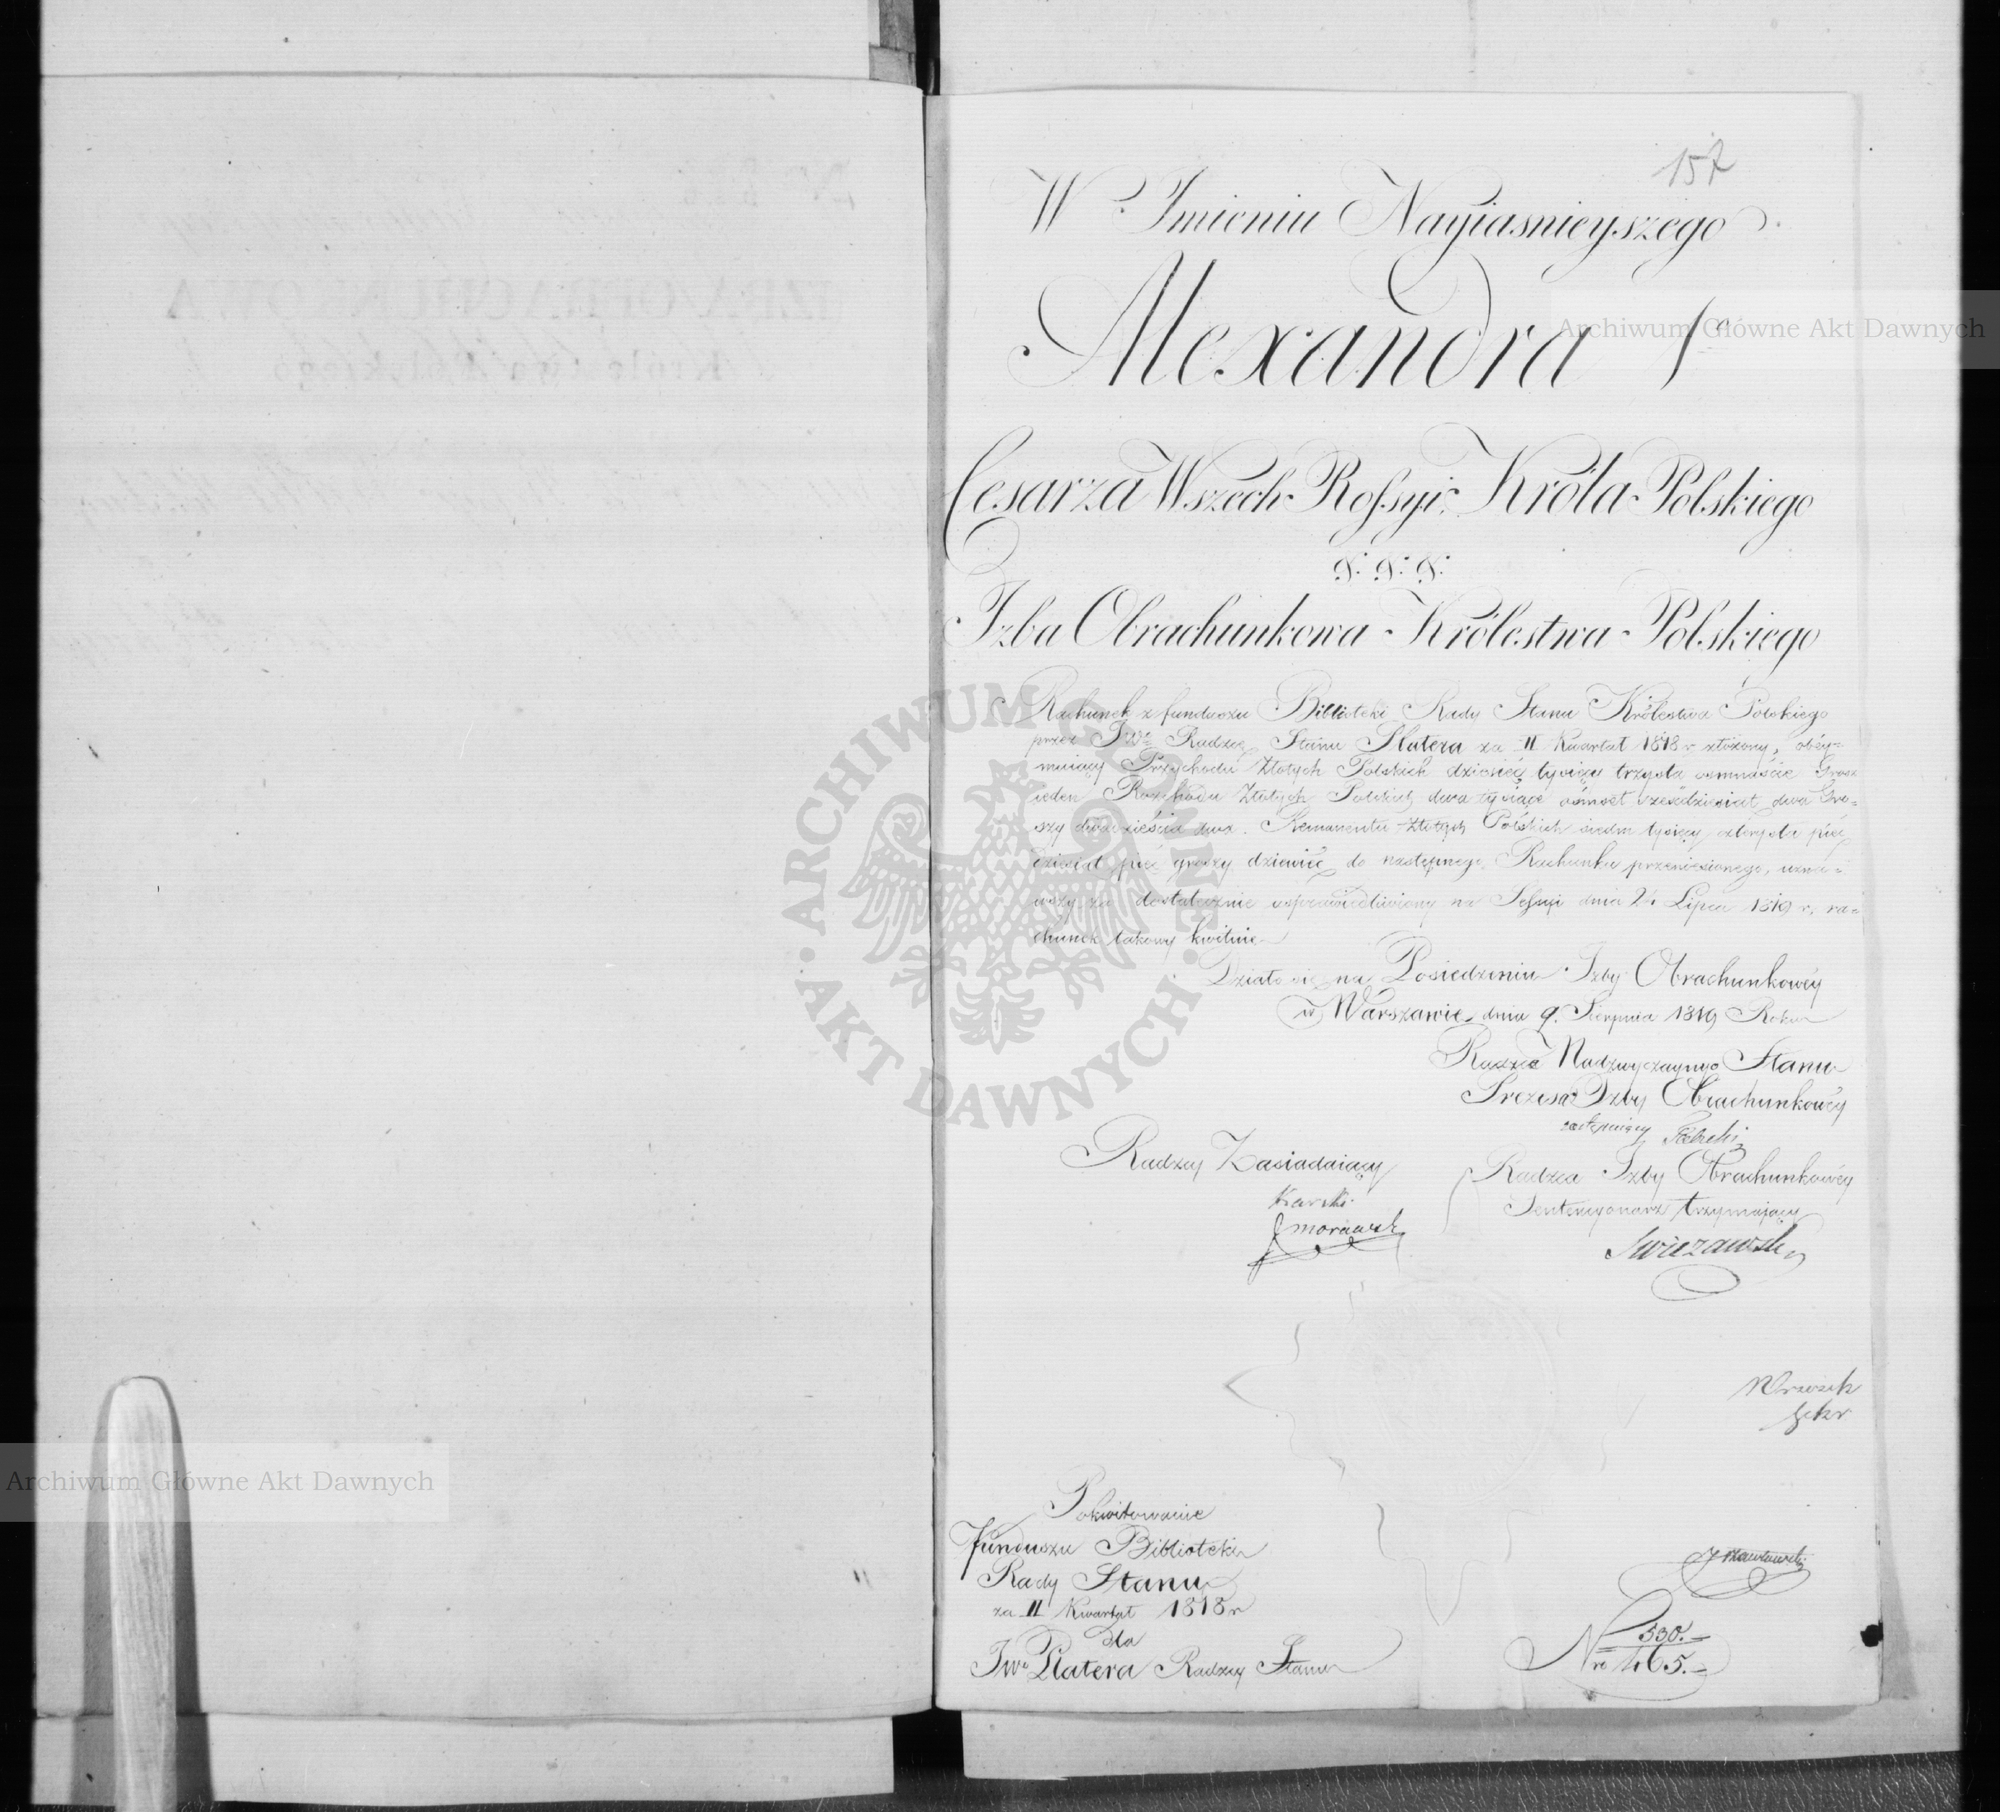 157
W Imieniu Nayiasnieyszego
Alexandra Iº
Cesarza Wszech Rossyi Króla Polskiego
&: &: &:
Izba Obrachunkowa Królestwa Polskiego
Rachunek z funduszu Biblioteki Rady Stanu Królestwa Polskiego
przez JWo Radzcę Stanu Platera za II Kwartał 1818 r. złożony, obey=
muiący Przychodu Złotych Polskich dziesięć tysięcy trzysta osmnaście Grosz
ieden Rozchodu Złotych Polskich dwa tysiące ośmset sześdziesiąt dwa Gro=
szy dwadzieścia dwa. Remanentu Złotych Polskich siedm tysięcy czterysta pięć
dziesiąt pięć groszy dziewięć do następnego Rachunku przeniesionego, uzna=
wszy za dostatecznie usprawiedliwiony na Sessyi dnia 24 Lipca 1819 r. ra=
chunek takowy kwituie
Działo się na Posiedzeniu Izby Obrachunkowéy
w Warszawie dnia 9. Sierpnia 1819 Roku
Radzca Nadzwyczayny Stanu
Prezesa Izby Obrachunkowéy
zastępuiący
Radzcy Zasiadaiący
Karski
Morawsk
Radzca Izby Obrachunkowéy
Sentencyonarz trzymaiący
Swiezawski
Wrzosek
Sekr
Pokwitowanie
funduszu Biblioteki
Rady Stanu
za II Kwartał 1818 r
dla
JWo Platera Radzcy Stanu
Nro 530.
465.
IZBA OBRACHUNKOWA
Królestwa Polskiego
ARCHIWUM GŁÓWNE AKT DAWNYCH
Archiwum Główne Akt Dawnych
Archiwum Główne Akt Dawnych